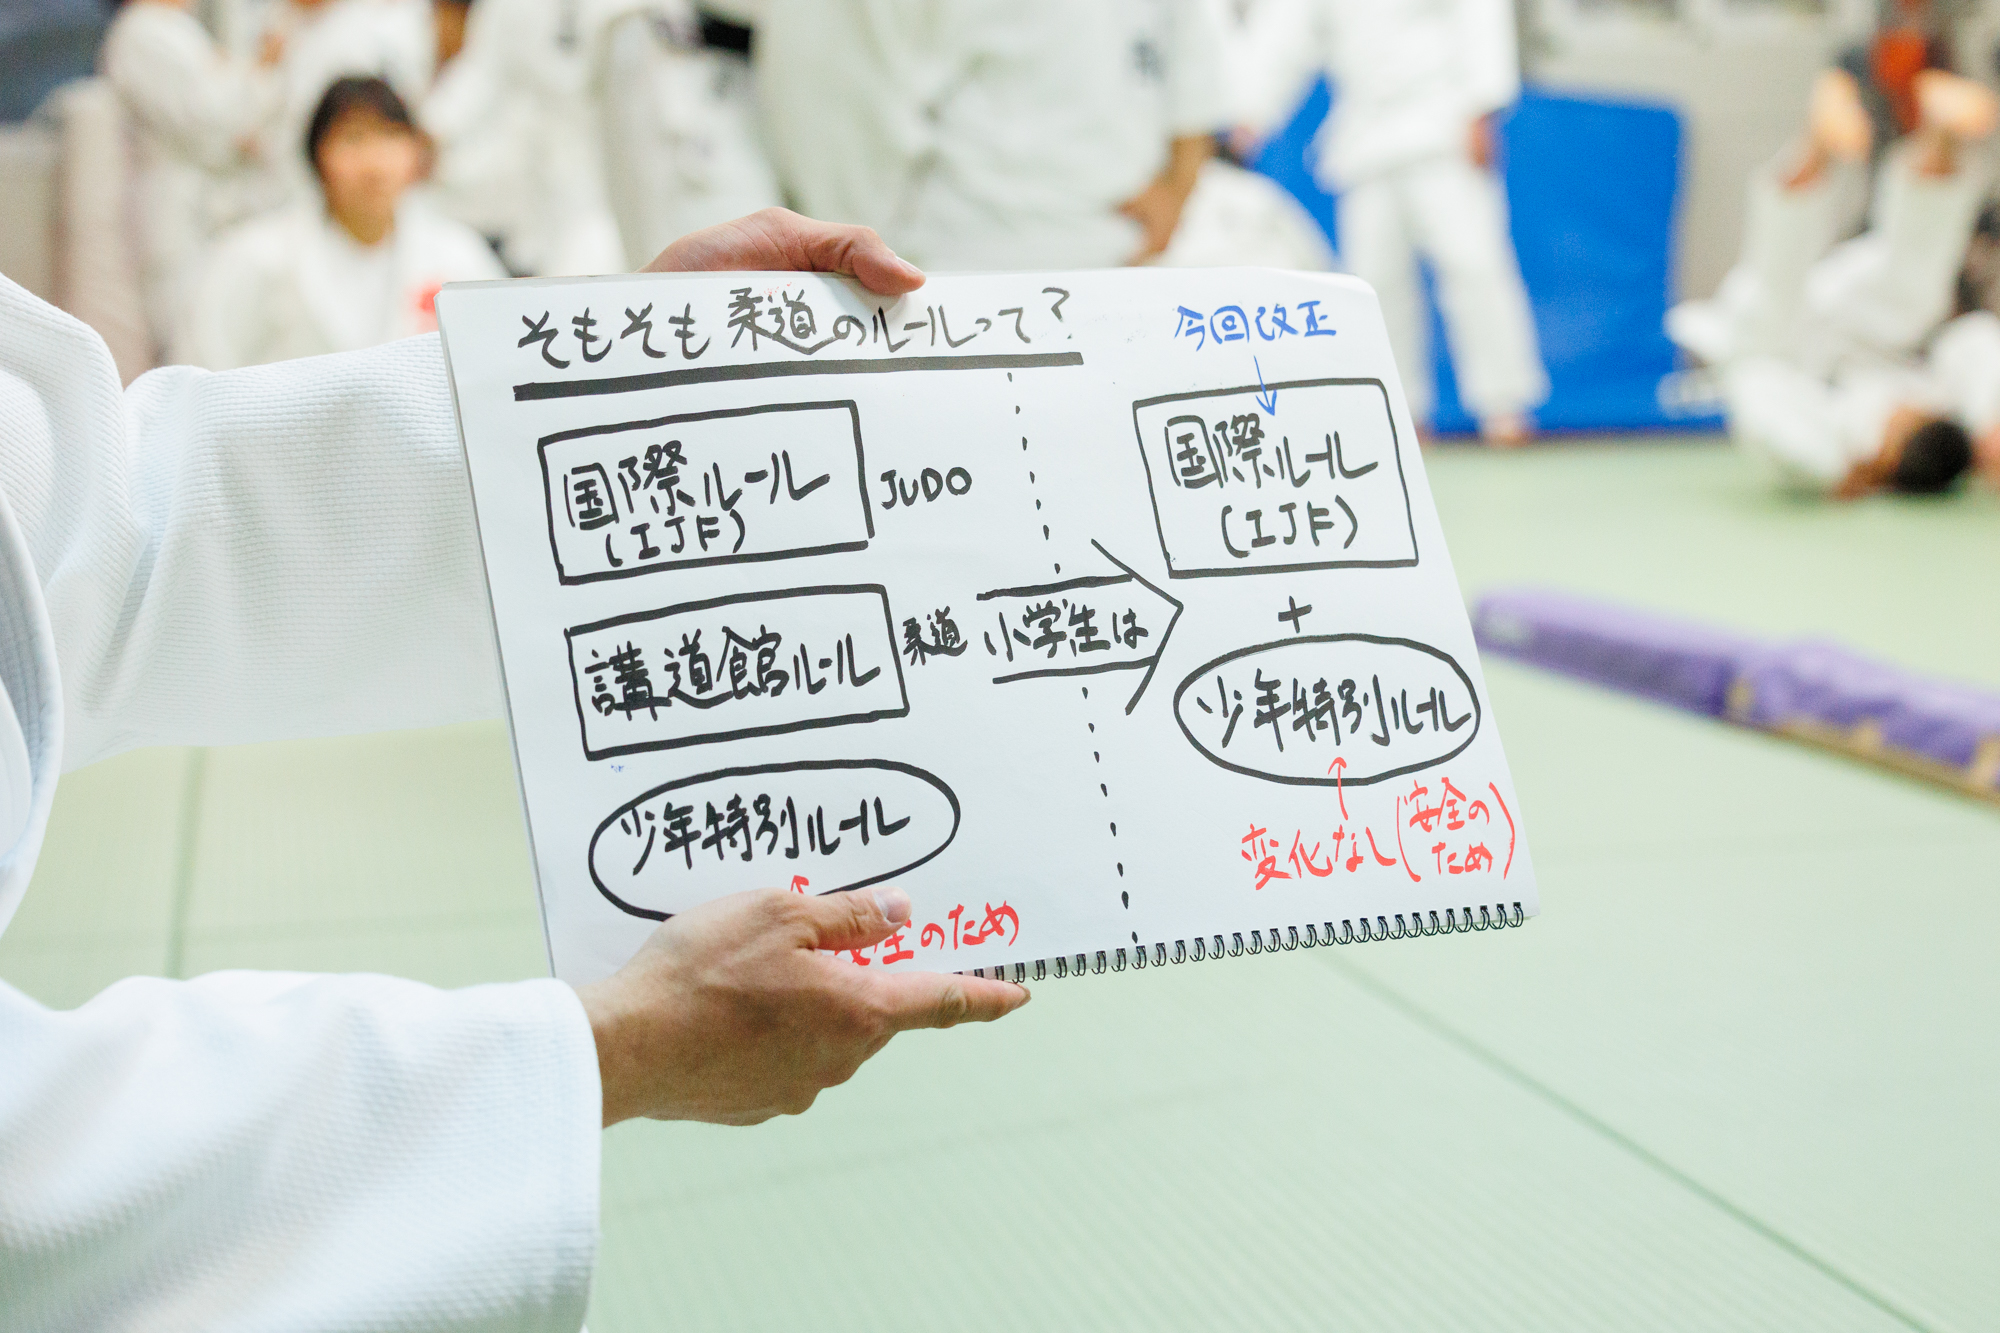 そもそも柔道のルールって?
国際ルール
(IJF)
JUDO
講道館ルール
柔道
少年特別ルール
全のため
小学生は
今回改正
国際ルール
(IJF)
+
少年特別ルール
変化なし(安全の
ため)